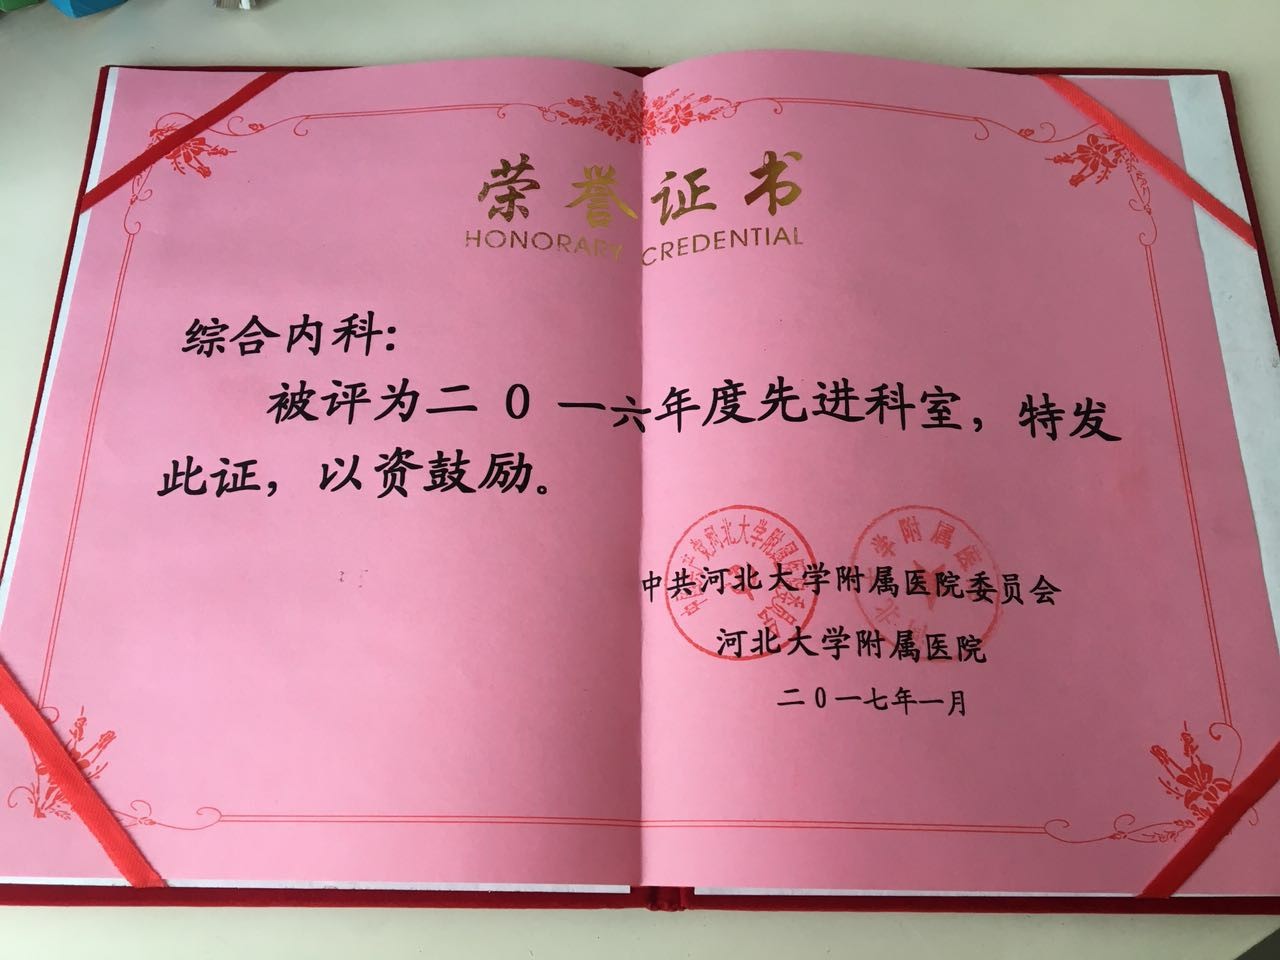 荣誉证书
HONORARY CREDENTIAL
综合内科：
被评为二０一六年度先进科室，特发
此证，以资鼓励。
中共河北大学附属医院委员会
河北大学附属医院
二０一七年一月